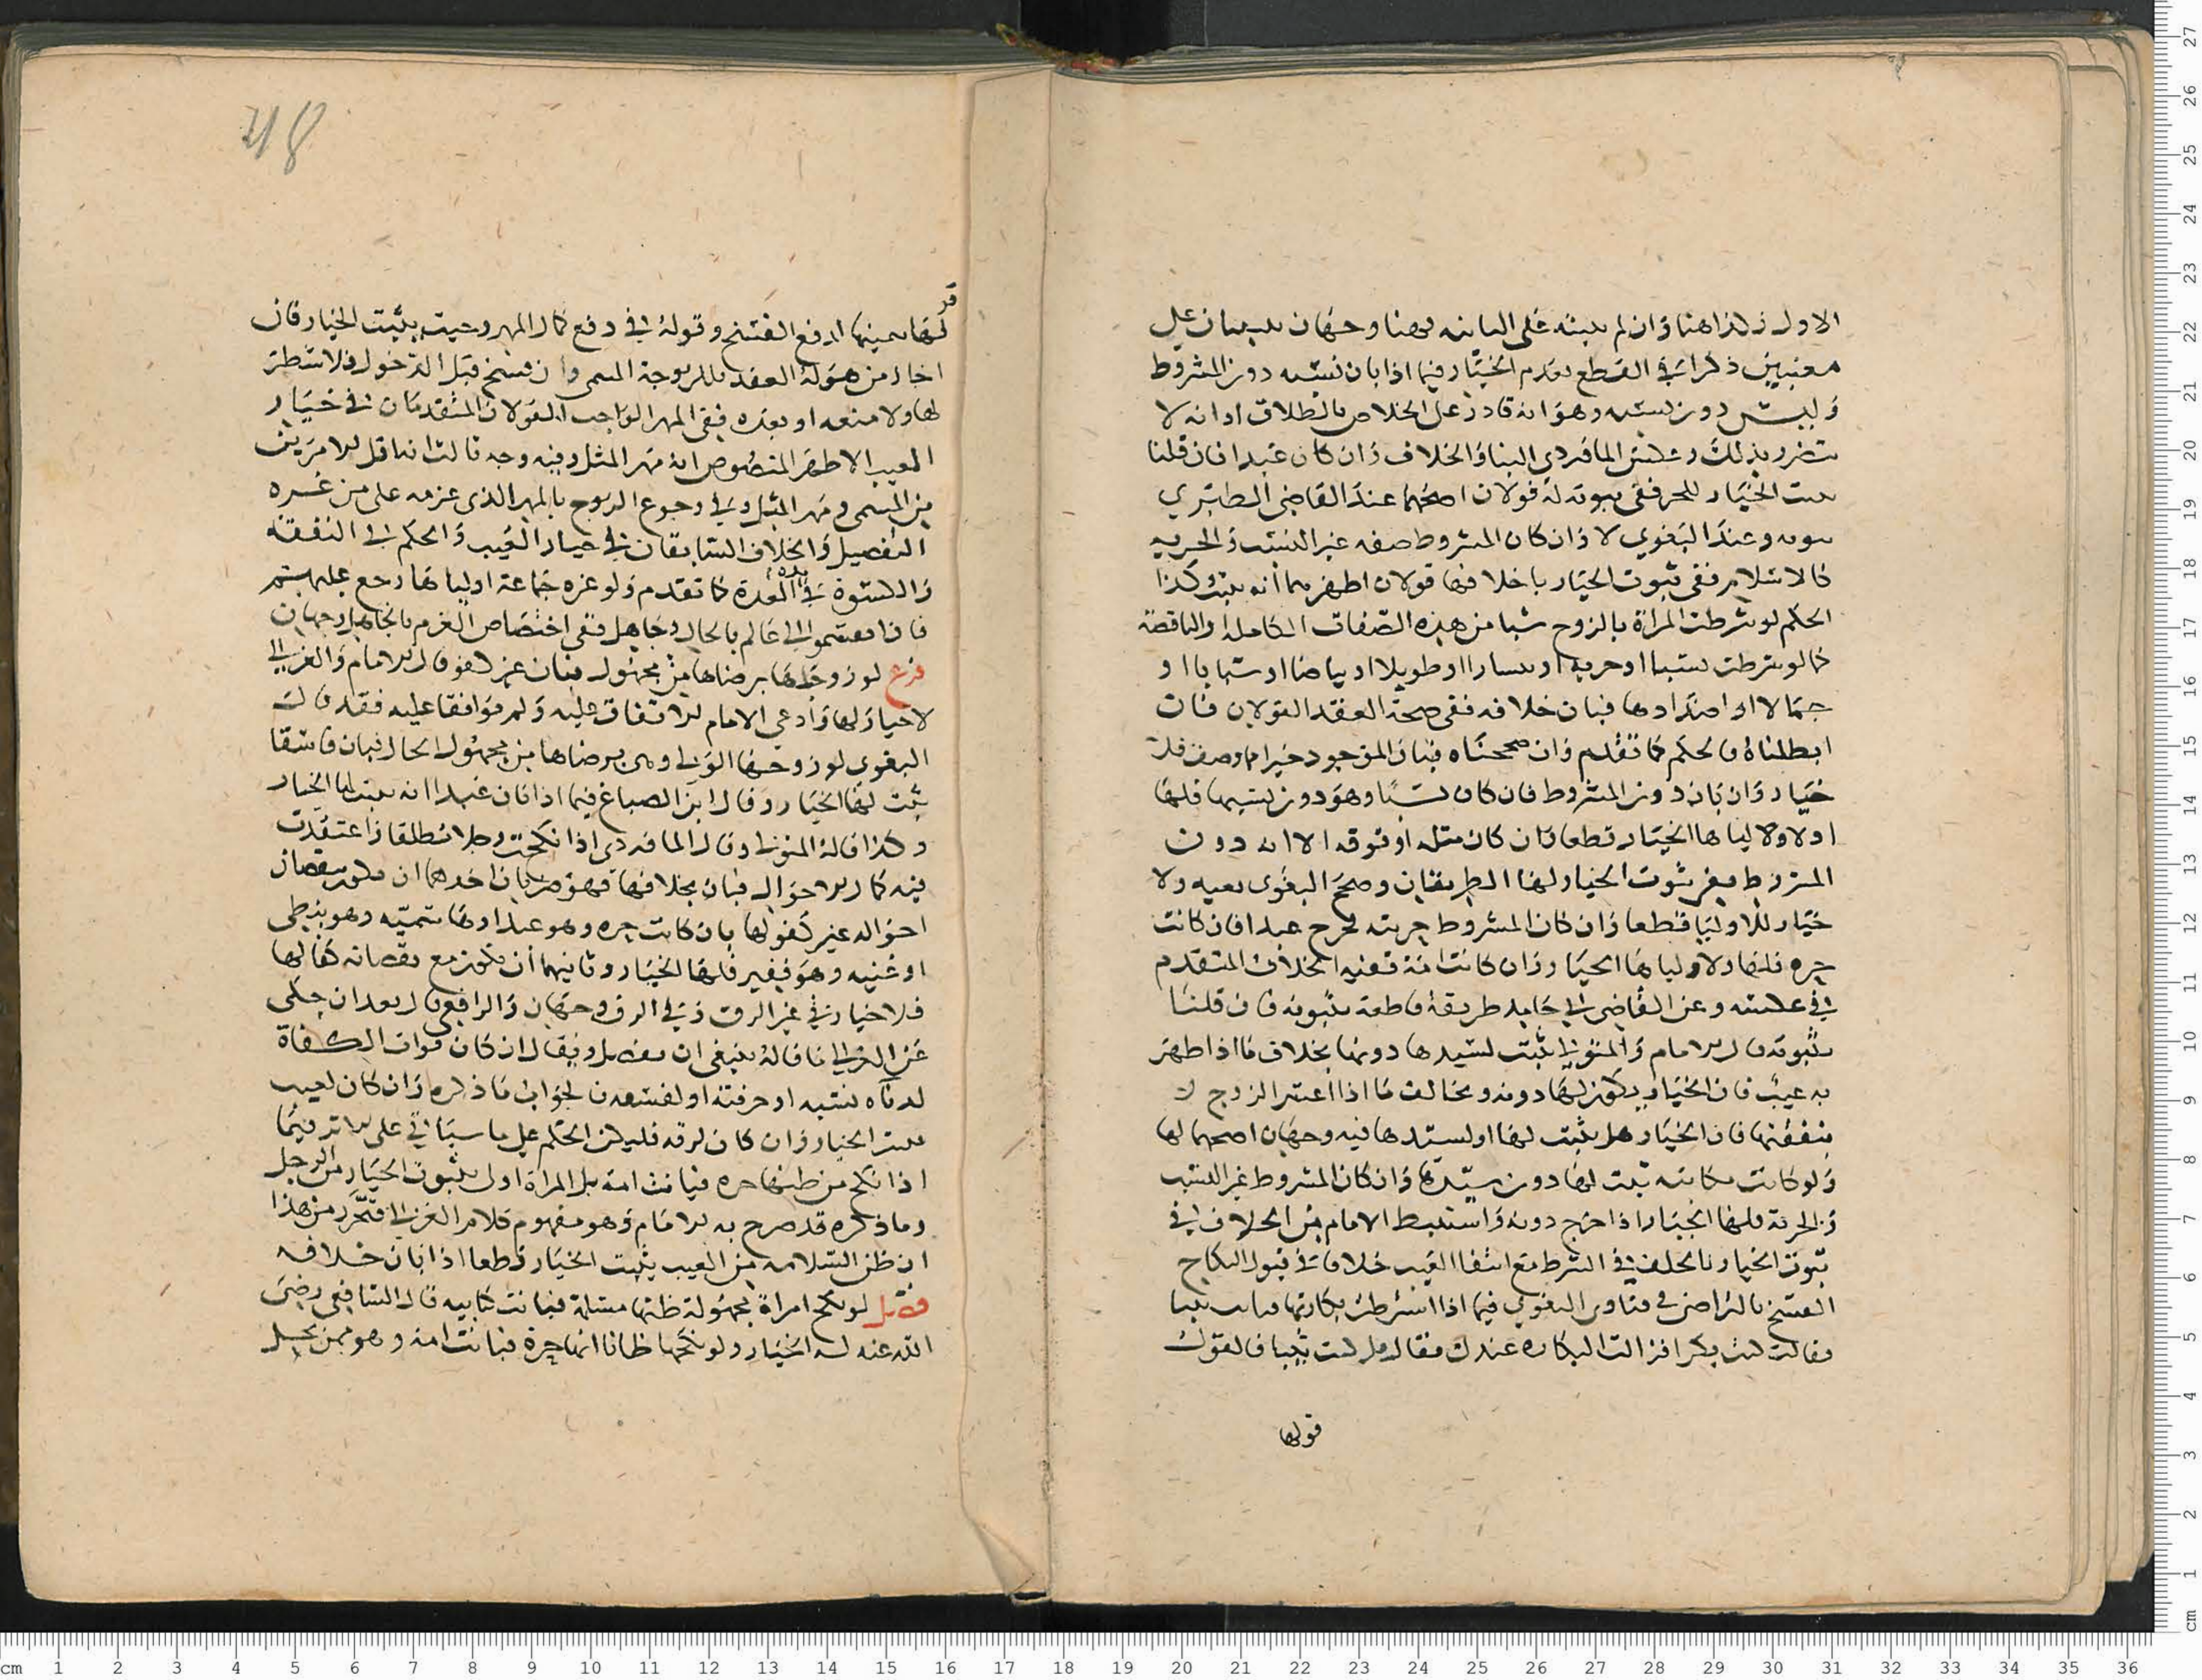 الاول وكذا هنا وان لم يثبته على الثانيه فهنا وجهان يبنيان على
معنيين ذكرا في القطع بعدم الخيار فيما اذا بان نسبه دون المشروط
وليس دون نسبه وهو انه قادر على الخلاص بالطلاق او انه لا
يتضرر بذلك وعكس الماوردي البنا والخلاف وان كان عبدا فان قلنا
يثبت الخيار للحر ففي ثبوته له قولان اصحهما عند القاضي الطبري
ثبوته وعند البغوي لا وان كان المشروط صفه غير النسب والحريه
كالاسلام ففي ثبوت الخيار باخلافها قولان اظهرهما انه يثبت وكذا
الحكم لو شرطت المراة بالزوج شيا من هذه الصفات الكاملة والناقصة
كما لو شرطت نسبا او حرية او يسارا او طويلا او بياضا او شبابا او
جمالا او اضدادها فبان خلافه ففي صحة العقد القولان فان
ابطلناه فالحكم كما تقدم وان صححناه فبان الموجود خيرا مما وصف فلا
خيار وان بان دون المشروط فان كان نسبا وهو دون نسبها فلها
اولا ولاوليايها الخيار قطعا وان كان مثله او فوقه الا انه دون
المشروط ففي ثبوت الخيار لها الطريقان وصحح البغوي نفيه ولا
خيار للاوليا قطعا وان كان المشروط حريته فخرج عبدا فان كانت
حره فلها ولاوليايها الخيار وان كانت امة ففيه الخلاف المتقدم
في عكسه وعن القاضي ابي حامد طريقة قاطعة بثبوته فان قلنا
بثبوته قال الامام والمتولي يثبت لسيدها دونها بخلاف ما اذا ظهر
به عيب فان الخيار يكون لها دونه ويخالف ما اذا اعسر الزوج
بنفقتها فان الخيار هل يثبت لها او لسيدها فيه وجهان اصحهما لها
ولو كانت مكاتبه ثبت لها دون سيدها وان كان المشروط غير النسب
والحرية فلها الخيار اذا خرج دونه واستنبط الامام من الخلاف في
ثبوت الخيار بالخلف في الشرط مع انتفا العيب خلافا في قبول النكاح
الفسخ بالتراضي وفي فتاوى البغوي فيما اذا شرطت بكارتها فبانت ثيبا
فقالت كنت بكرا فزالت البكاره عندك فقال بل كنت ثيبا فالقول
قولها
قو
لها بيمينها لدفع الفسخ وقوله في دفع كمال المهر وحيث يثبت الخيار فان
اجاز من هو له العقد فللزوجة المسمى وان فسخ قبل الدخول فلا شطر
لها ولا متعه او بعده ففي المهر الواجب القولان المتقدمان في خيار
العيب الاظهر المنصوص انه مهر المثل وفيه وجه ثالث انه اقل الامرين
من المسمى ومهر المثل وفي رجوع الزوج بالمهر الذي غرمه على من غره
التفصيل والخلاف السابقان في خيار العيب والحكم في النفقة
والكسوة في العدة كما تقدم ولو غره جماعة اوليايها رجع عليهم
فان انقسموا الى عالم بالحال وجاهل ففي اختصاص الغرم بالجاهل وجهان
فرع لو زوجها برضاها من مجهول فبان غير كفو قال الامام والغزالي
لا خيار لها وادعى الامام الاتفاق عليه ولم يوافقا عليه فقد قال
البغوي لو زوجها الولي برضاها من مجهول الحال فبان فاسقا
يثبت لها الخيار وقال ابن الصباغ فيما اذا بان عبدا انه يثبت لها الخيار
وكذا قاله المتولي وقال الماوردي اذا نكحت رجلا مطلقا واعتقدت
فيه كمال الاحوال فبان بخلافها فهو ضربان احدهما ان يكون بنقصان
احواله غير كفو لها بان كانت حره وهو عبد او هاشميه وهو نبطي
او غنيه وهو فقير فلها الخيار وثانيهما ان يكون مع نقصانه كفا لها
فلا خيار في غير الرق وفي الرق وجهان والرافعي قال بعد ان حكى
عن الغزالي ما قاله ينبغي ان يفصل ويقال ان كان فوات الكفاة
لدناة نسبه او حرفته او لفسقه فالجواب ما ذكره وان كان لعيب
يثبت الخيار وان كان لرقه فليكن الحكم على ما سياتي على الاثر فيما
اذا نكح من ظنها حره فبانت امة بل المراة اولى بثبوت الخيار من الرجل
وما ذكره قد صرح به الامام وهو مفهوم كلام الغزالي فتحرر من هذا
ان ظن السلامه من العيب يثبت الخيار قطعا اذا بان خلافه
فصل لو نكح امراة مجهولة ظنها مسلمة فبانت كتابيه قال الشافعي رضي
الله عنه له الخيار ولو نكحها ظانا انها حرة فبانت امة وهو ممن يحل